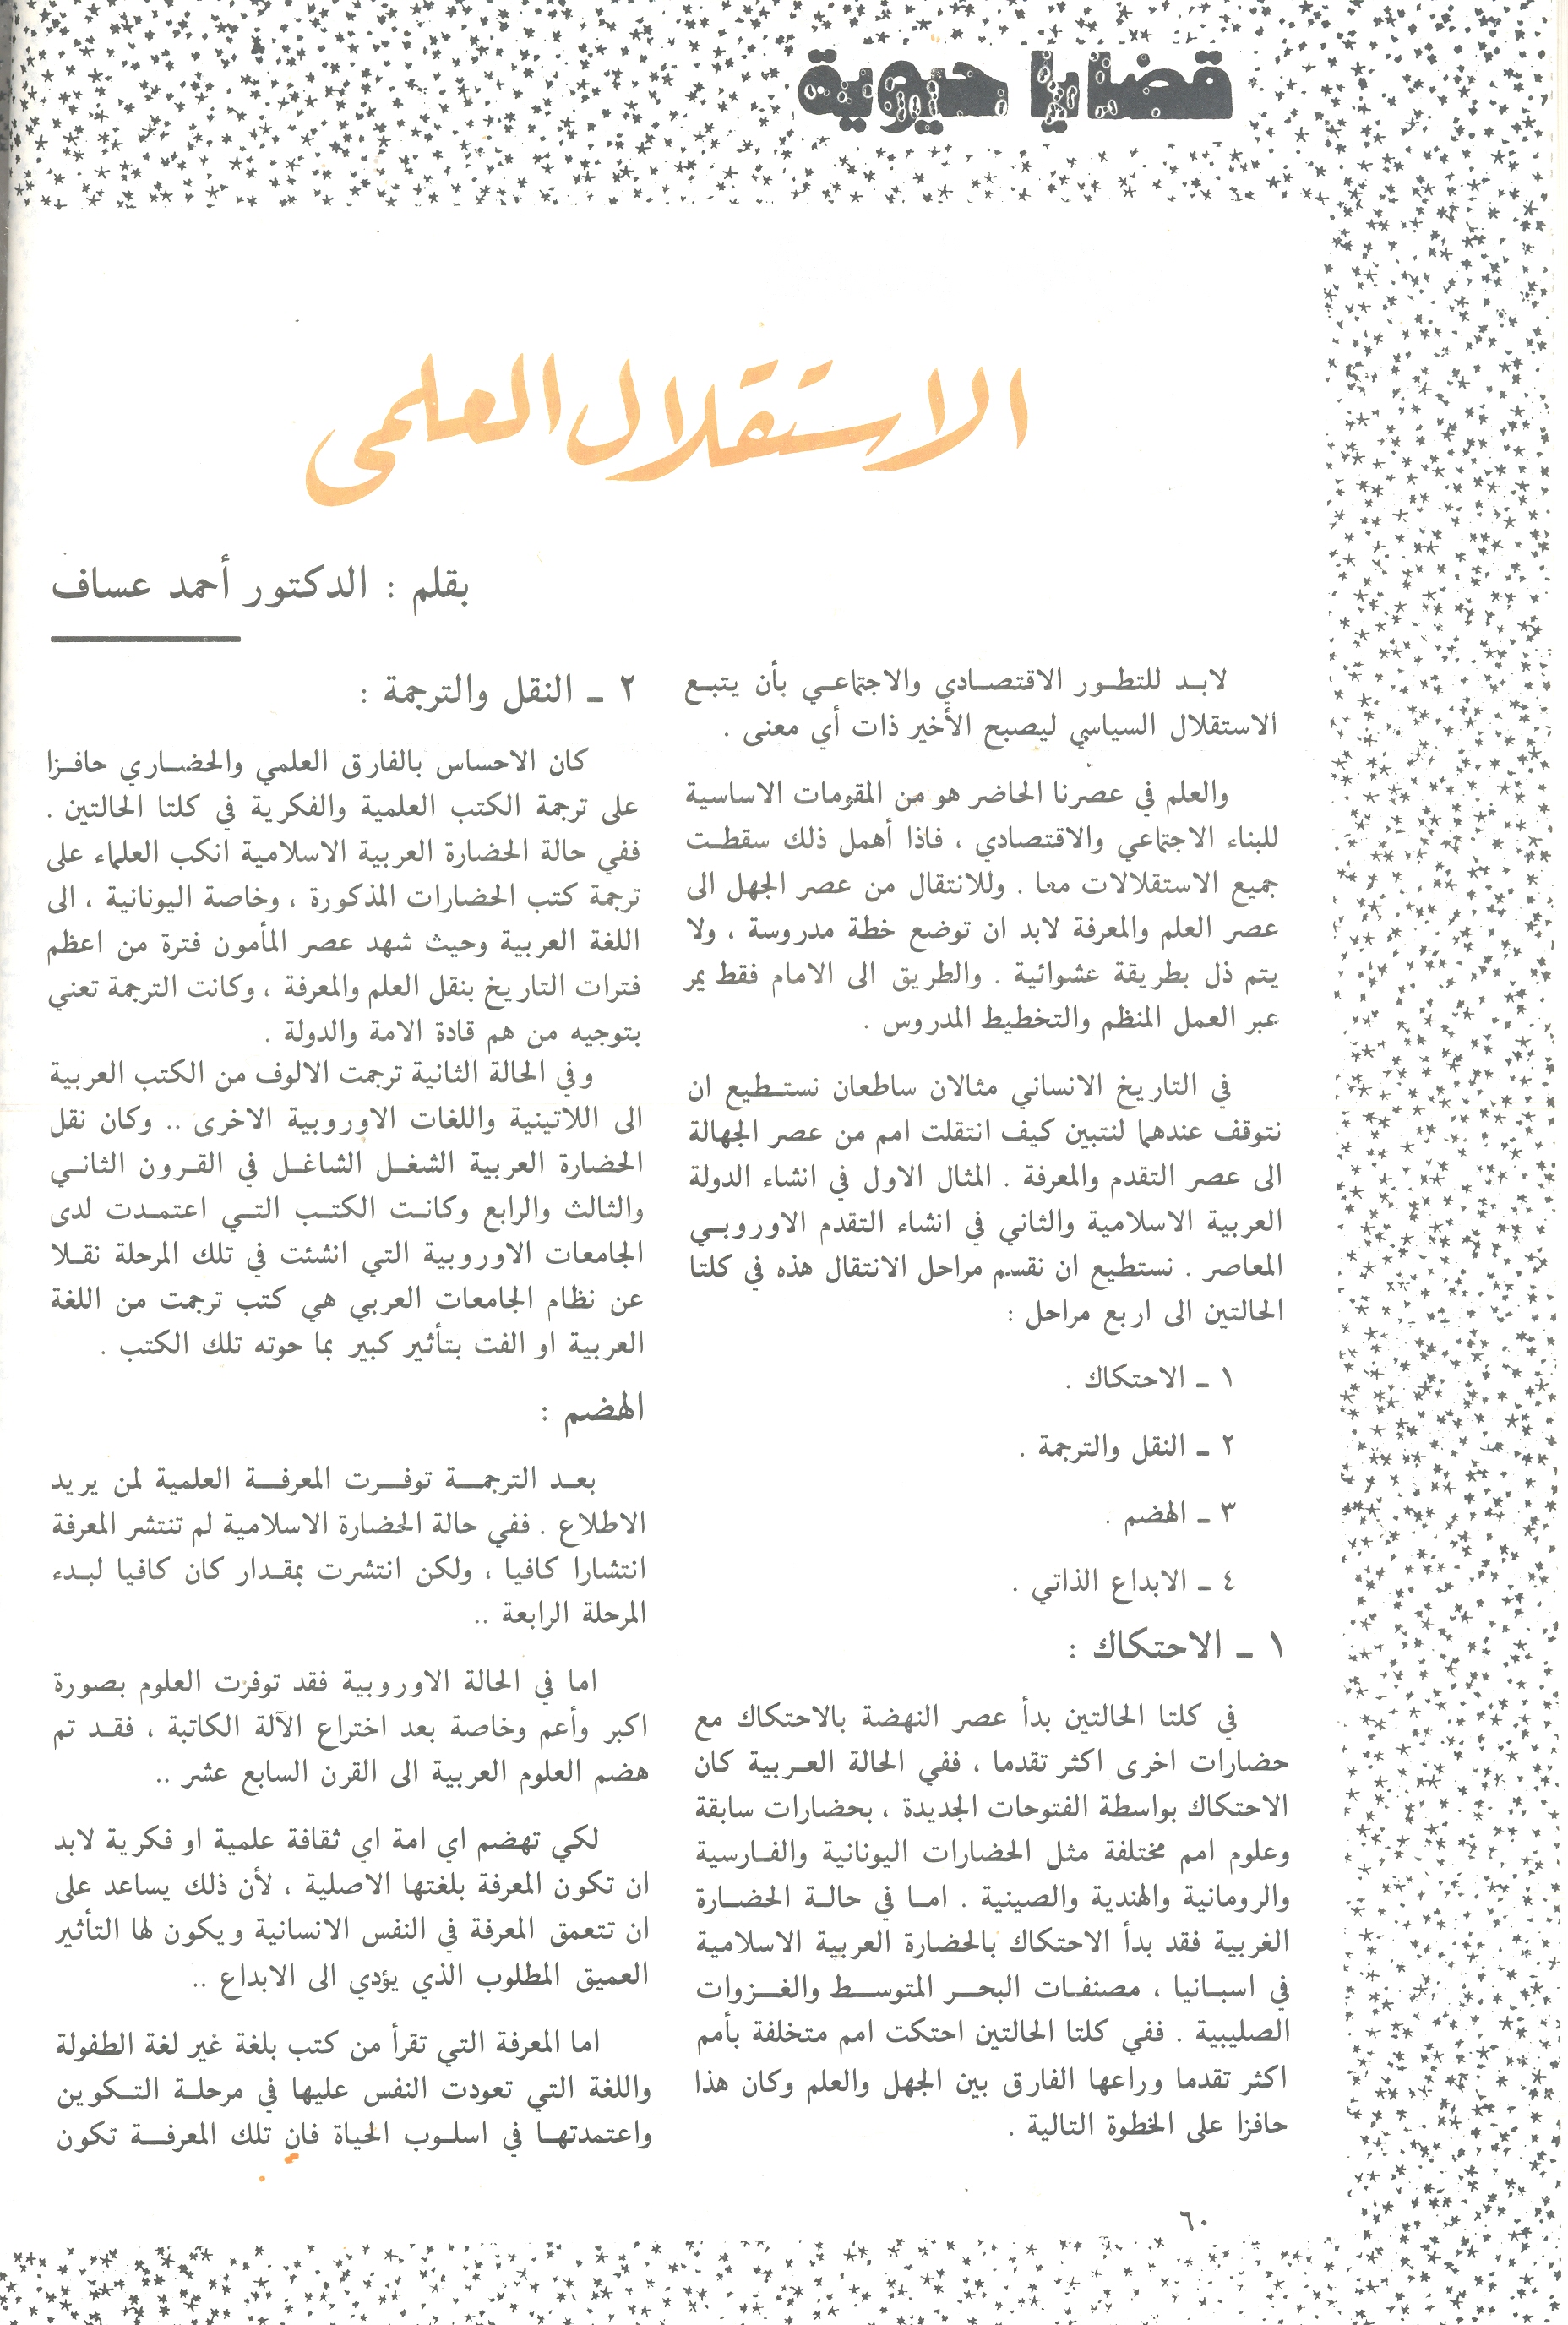 قضايا حيوية
الاستقلال العلمي
بقلم : الدكتور أحمد عساف
لابد للتطور الاقتصادي والاجتماعي بأن يتبع
الاستقلال السياسي ليصبح الأخير ذات أي معنى .
والعلم في عصرنا الحاضر هو من المقومات الاساسية
للبناء الاجتماعي والاقتصادي ، فاذا أهمل ذلك سقطت
جميع الاستقلالات معا . وللانتقال من عصر الجهل الى
عصر العلم والمعرفة لابد ان توضع خطة مدروسة ، ولا
يتم ذل بطريقة عشوائية . والطريق الى الامام فقط يمر
عبر العمل المنظم والتخطيط المدروس .
في التاريخ الانساني مثالان ساطعان نستطيع ان
نتوقف عندهما لنتبين كيف انتقلت امم من عصر الجهالة
الى عصر التقدم والمعرفة . المثال الاول في انشاء الدولة
العربية الاسلامية والثاني في انشاء التقدم الاوروبي
المعاصر . نستطيع ان نقسم مراحل الانتقال هذه في كلتا
الحالتين الى اربع مراحل :
١ ـ الاحتكاك .
٢ ـ النقل والترجمة .
٣ ـ الهضم .
٤ ـ الابداع الذاتي .
١ ـ الاحتكاك :
في كلتا الحالتين بدأ عصر النهضة بالاحتكاك مع
حضارات اخرى اكثر تقدما ، ففي الحالة العربية كان
الاحتكاك بواسطة الفتوحات الجديدة ، بحضارات سابقة
وعلوم امم مختلفة مثل الحضارات اليونانية والفارسية
والرومانية والهندية والصينية . اما في حالة الحضارة
الغربية فقد بدأ الاحتكاك بالحضارة العربية الاسلامية
في اسبانيا ، مصنفات البحر المتوسط والغزوات
الصليبية . ففي كلتا الحالتين احتكت امم متخلفة بأمم
اكثر تقدما وراعها الفارق بين الجهل والعلم وكان هذا
حافزا على الخطوة التالية .
٢ ـ النقل والترجمة :
كان الاحساس بالفارق العلمي والحضاري حافزا
على ترجمة الكتب العلمية والفكرية في كلتا الحالتين .
ففي حالة الحضارة العربية الاسلامية انكب العلماء على
ترجمة كتب الحضارات المذكورة ، وخاصة اليونانية ، الى
اللغة العربية وحيث شهد عصر المأمون فترة من اعظم
فترات التاريخ بنقل العلم والمعرفة ، وكانت الترجمة تعني
بتوجيه من هم قادة الامة والدولة .
وفي الحالة الثانية ترجمت الالوف من الكتب العربية
الى اللاتينية واللغات الاوروبية الاخرى .. وكان نقل
الحضارة العربية الشغل الشاغل في القرون الثاني
والثالث والرابع وكانت الكتب التي اعتمدت لدى
الجامعات الاوروبية التي انشئت في تلك المرحلة نقلا
عن نظام الجامعات العربي هي كتب ترجمت من اللغة
العربية او الفت بتأثير كبير بما حوته تلك الكتب .
الهضم :
بعد الترجمة توفرت المعرفة العلمية لمن يريد
الاطلاع . ففي حالة الحضارة الاسلامية لم تنتشر المعرفة
انتشارا كافيا ، ولكن انتشرت بمقدار كان كافيا لبدء
المرحلة الرابعة ..
اما في الحالة الاوروبية فقد توفرت العلوم بصورة
اكبر وأعم وخاصة بعد اختراع الآلة الكاتبة ، فقد تم
هضم العلوم العربية الى القرن السابع عشر ..
لكي تهضم اي امة اي ثقافة علمية او فكرية لابد
ان تكون المعرفة بلغتها الاصلية ، لأن ذلك يساعد على
ان تتعمق المعرفة في النفس الانسانية ويكون لها التأثير
العميق المطلوب الذي يؤدي الى الابداع ..
اما المعرفة التي تقرأ من كتب بلغة غير لغة الطفولة
واللغة التي تعودت النفس عليها في مرحلة التكوين
واعتمدتها في اسلوب الحياة فان تلك المعرفة تكون
٦٠